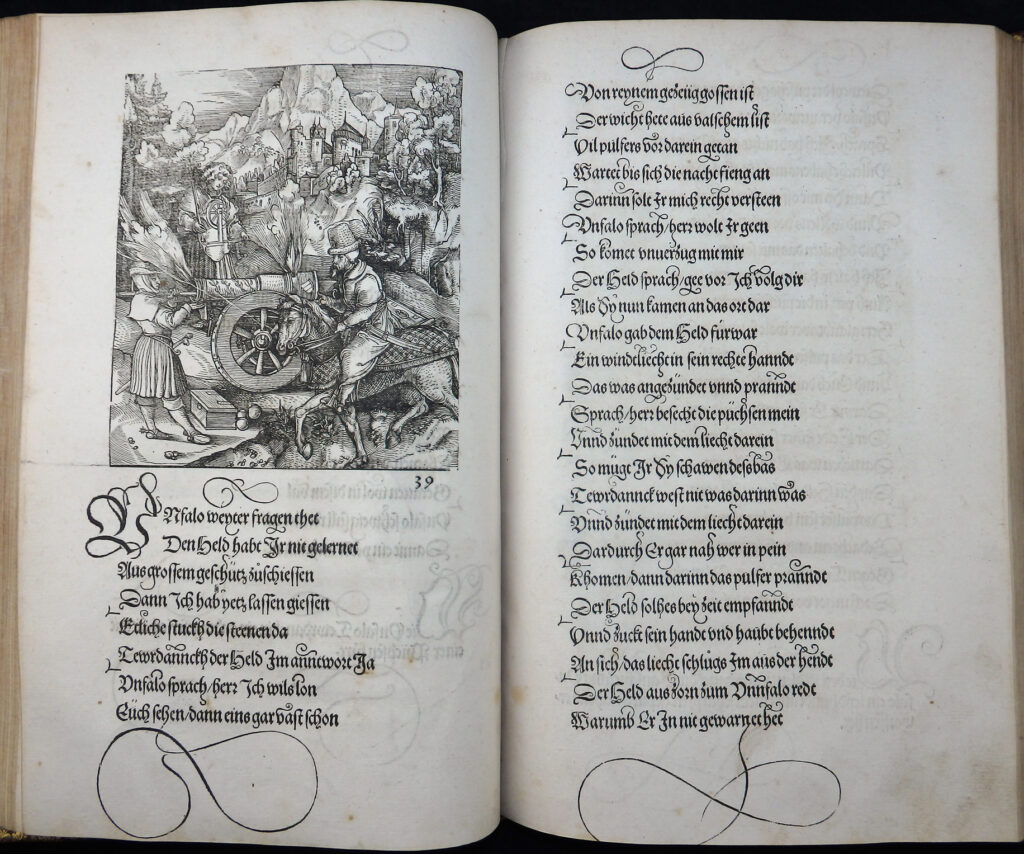 39
VNfalo weyter fragen thet
Den Held habt Ir nit gelernet
Aus grossem geschütz zuschiessen
Dann Ich hab yetz lassen giessen
Etliche stuckh die steenen da
Tewrdannckh der Held Im anntwort Ja
Vnfalo sprach/herr Ich wils lon
Eüch sehen/dann eins gar vast schon
Von reynem gezeüg gossen ist
Der wicht hete aus valschem list
Vil pulfers vor darein getan
Wartet bis sich die nacht fieng an
Darinn solt Ir mich recht versteen
Vnfalo sprach/herr wolt Ir geen
So komet vnuerzug mit mir
Der Held sprach/gee vor Ich volg dir
Als Sy nun kamen an das ort dar
Vnfalo gab dem Held fürwar
Ein windliecht in sein rechte hanndt
Das was angezündet vnnd pranndt
Sprach/herr besecht die püchsen mein
Vnnd zündet mit dem liecht darein
So müge Ir Sy schawen dessbas
Tewrdannck west nit was darinn was
Vnnd zündet mit dem liecht darein
Dardurch Er gar nah wer in pein
Khomen/dann darinn das pulfer pranndt
Der Held solhes bey zeit empfanndt
Vnnd zuckt sein handt vnd haubt behenndt
An sich/das liecht schlugs Im aus der hendt
Der Held aus zorn zum Vnnfalo redt
Warumb Er In nit gewarnet het